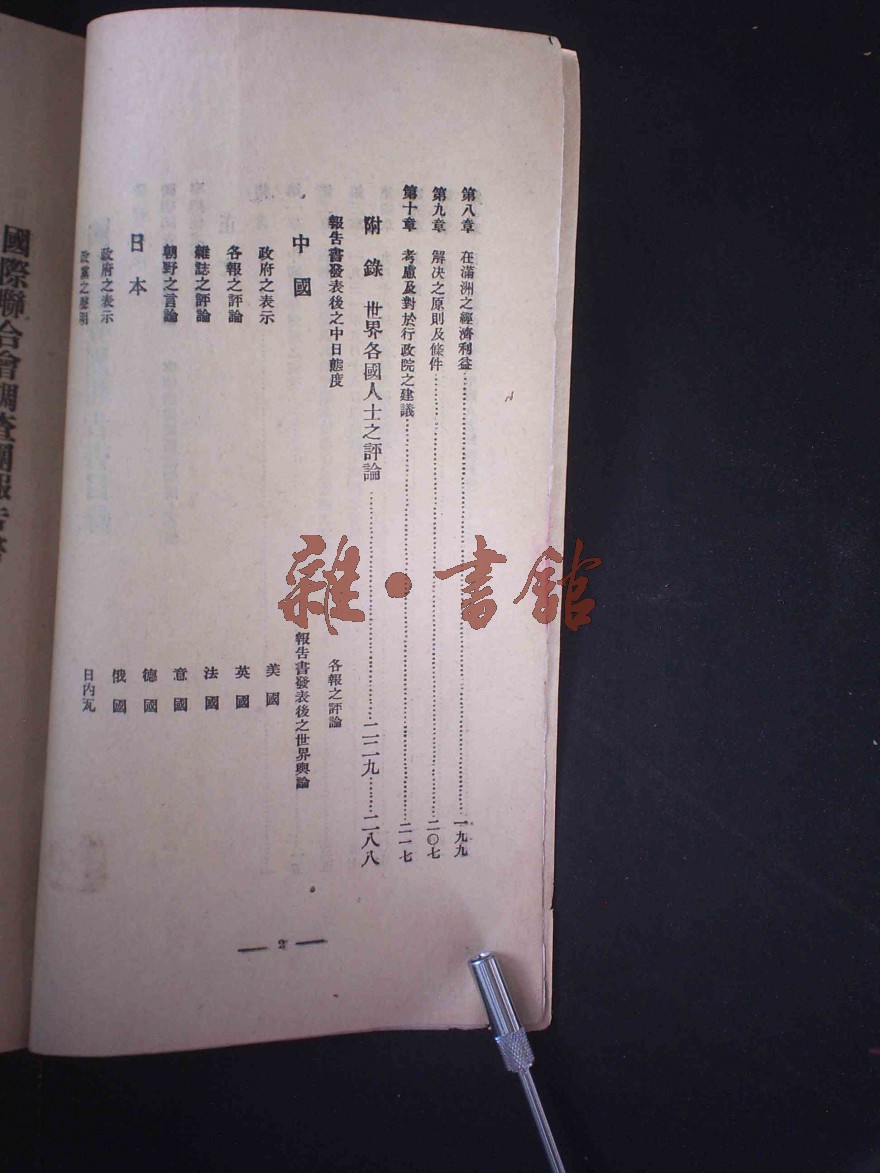 第八章　在滿洲之經濟利益……一九九
第九章　解決之原則及條件……二〇七
第十章　考慮及對於行政院之建議……二一七
附錄　世界各國人士之評論……二二九……二八八
報告書發表後之中日態度
中國
政府之表示
各報之評論
雜誌之評論
朝野之言論
日本
政府之表示
政黨之聲明
各報之評論
報告書發表後之世界輿論
美國
英國
法國
意國
德國
俄國
日內瓦
2
國際聯合會調查團報告書
雜·書館